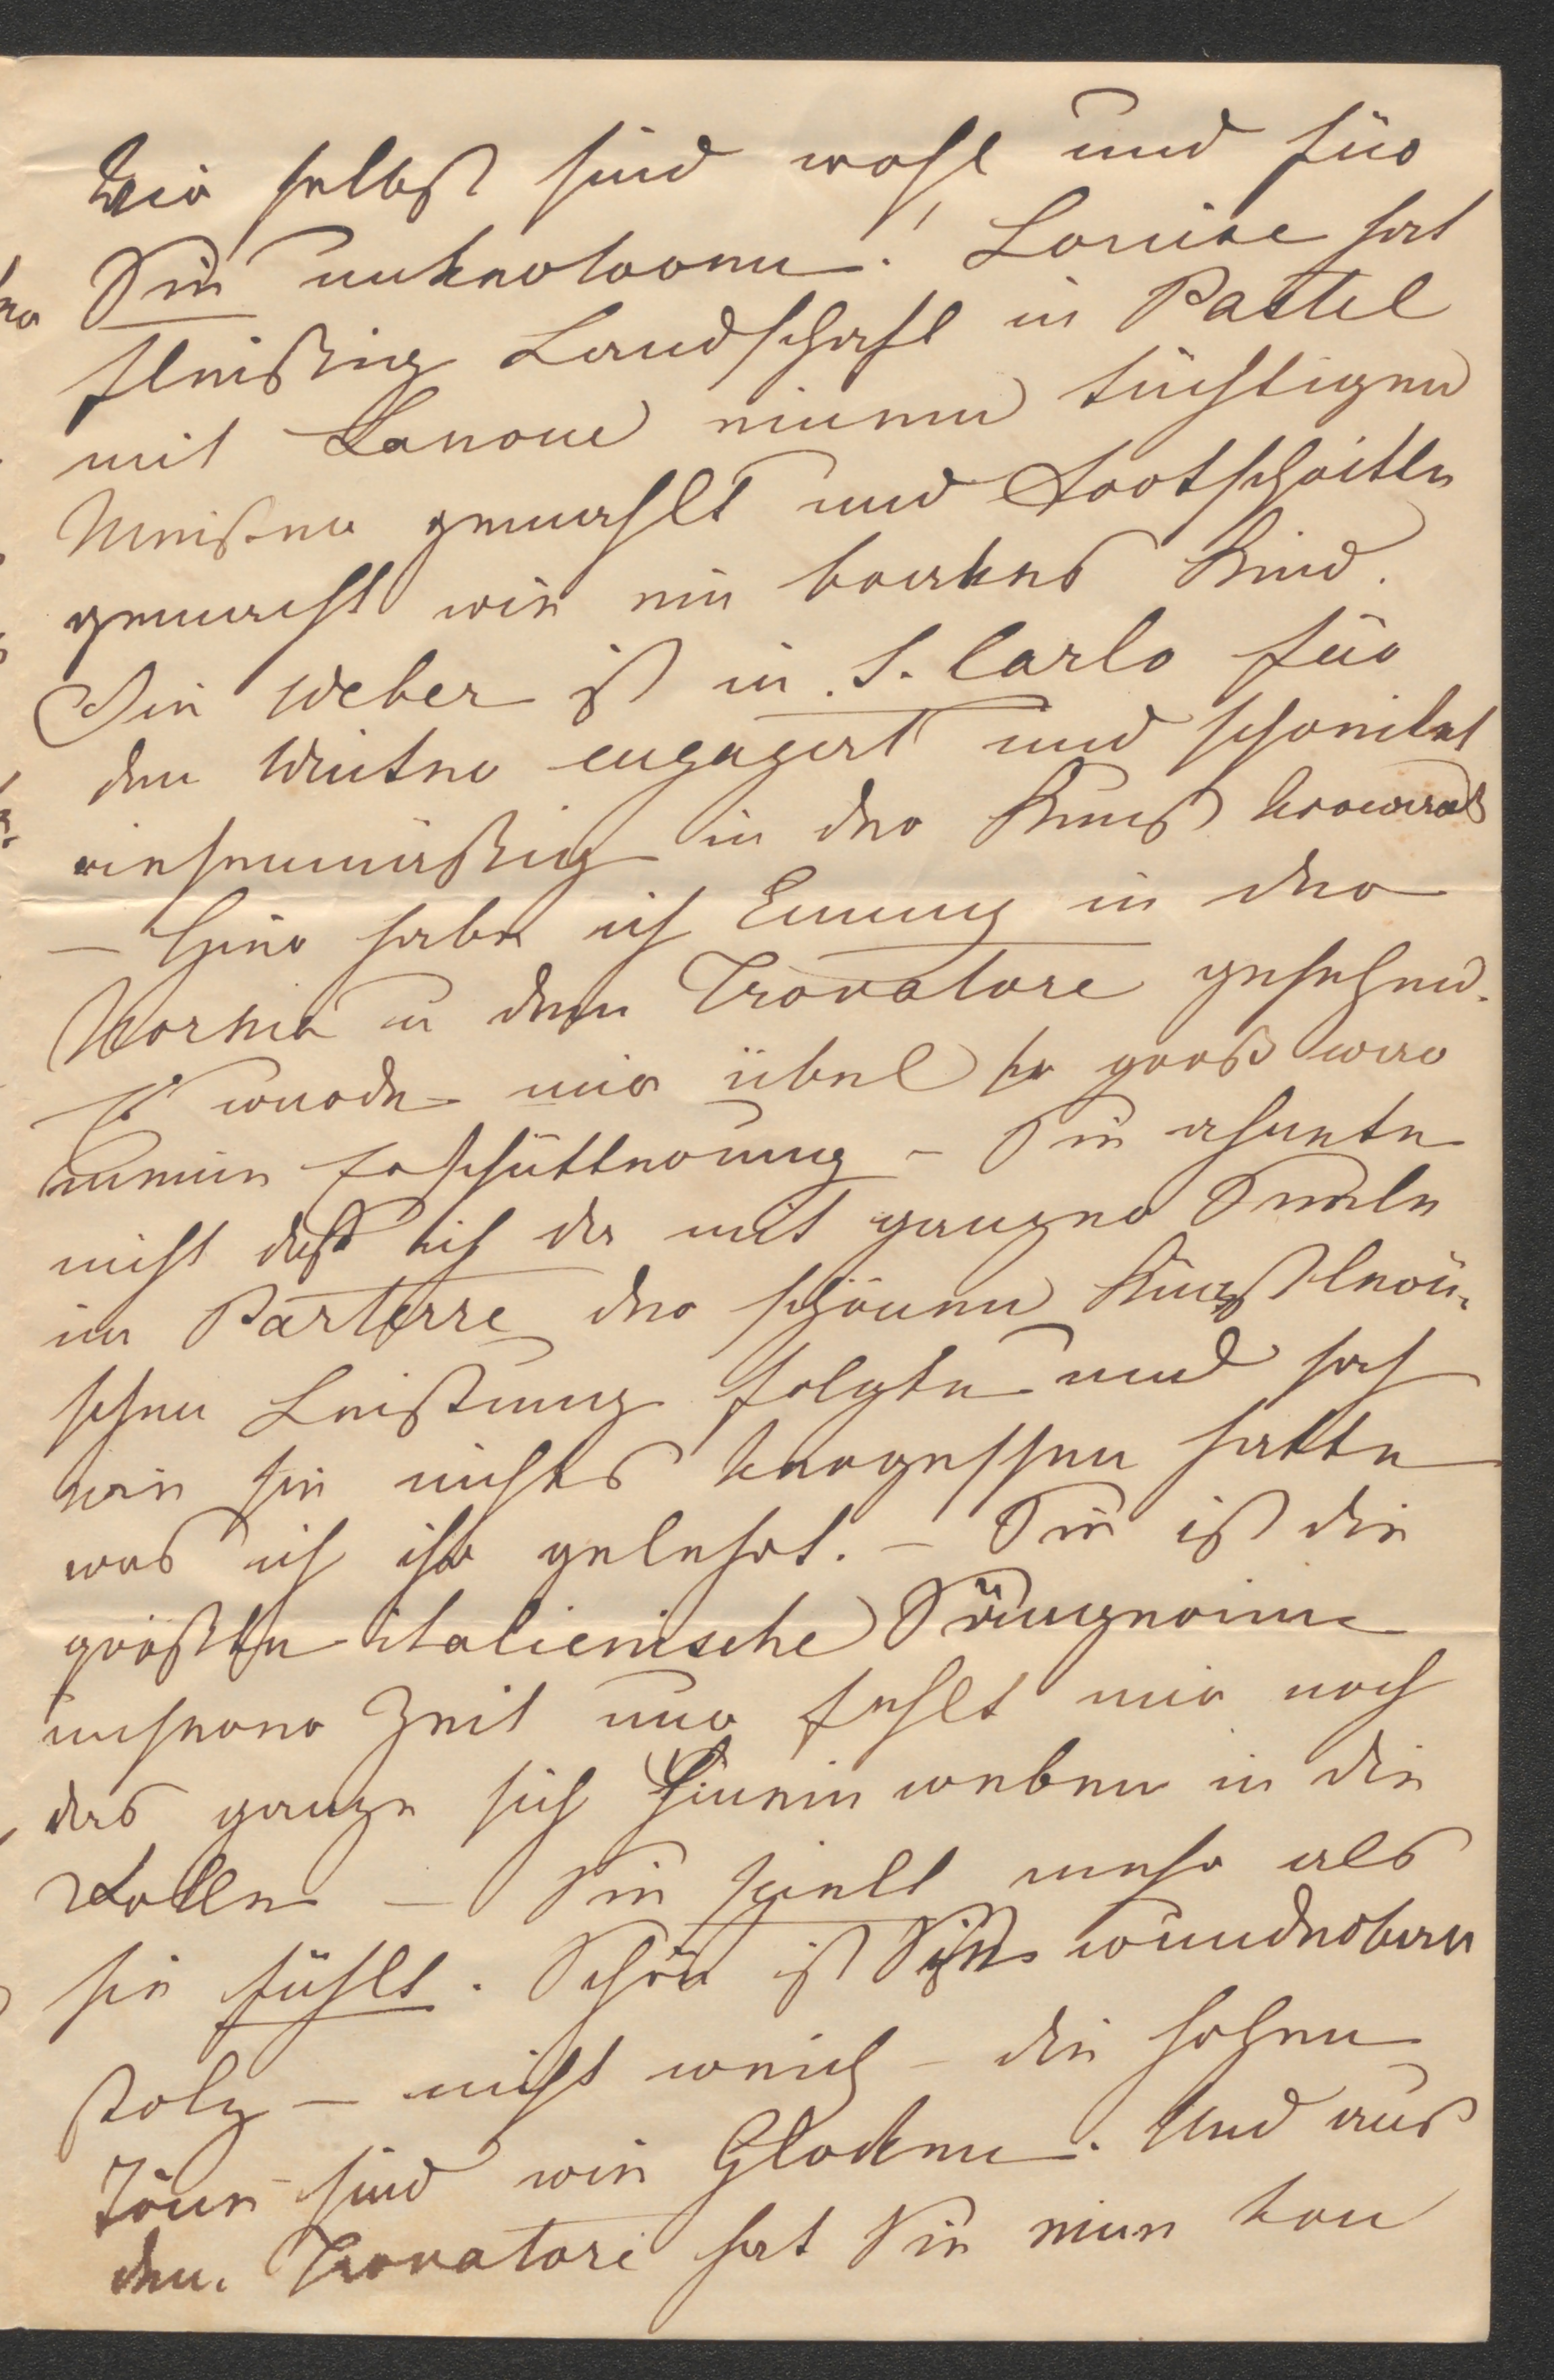 Wir selbst sind wohl und für
Sie unverloren! Louise hat
fleißig Landschaft in Pastel
mit Lanoue einem tüchtigen
Meister gemahlt und Fortschritte
gemacht wie ein braves Kind.
Die Weber ist in S. Carlo für
den Winter engagirt und schreitet
riesenmäßig in der Kunst vorwärts
– Hier habe ich Emmy in der
Norma u dem Trovatore gesehen.
Es wurde mir übel so groß war
meine Erschütterung – Sie ahnete
nicht daß ich da mit ganzer Seele
im Parterre der schönen Künstleri-
schen Leistung folgte und sah
wie sie nichts vergessen hatte
was ich ihr gelehrt. – Sie ist die
größte italienische Sängerinn
unserer Zeit nur fehlt mir noch
das ganze sich Hinein weben in die
Rolle – Sie spielt mehr als
sie fühlt. Schön ist Sie wunderbar
stolz – nicht weich – die hohen
Töne sind wie Glocken. Und aus
dem Trovatore hat Sie eine von